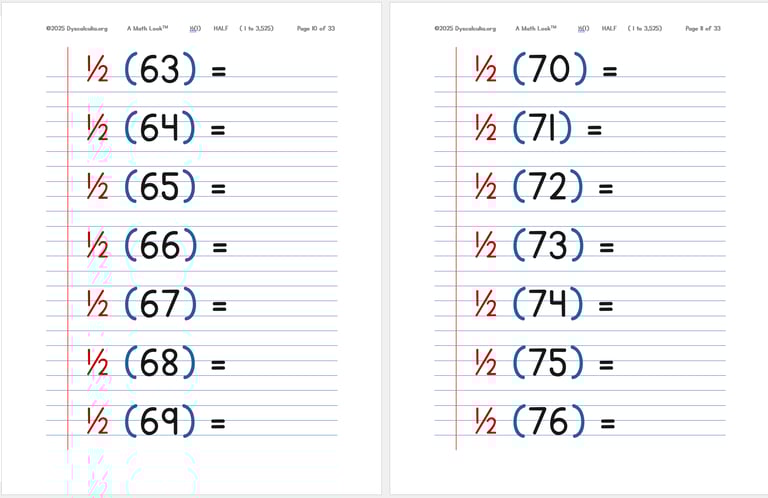 ©2025 Dyscalculia.org A Math Look™ ½() HALF (1 to 3,525) Page 10 of 33
½ (63) =
½ (64) =
½ (65) =
½ (66) =
½ (67) =
½ (68) =
½ (69) =
©2025 Dyscalculia.org A Math Look™ ½() HALF (1 to 3,525) Page 11 of 33
½ (70) =
½ (71) =
½ (72) =
½ (73) =
½ (74) =
½ (75) =
½ (76) =